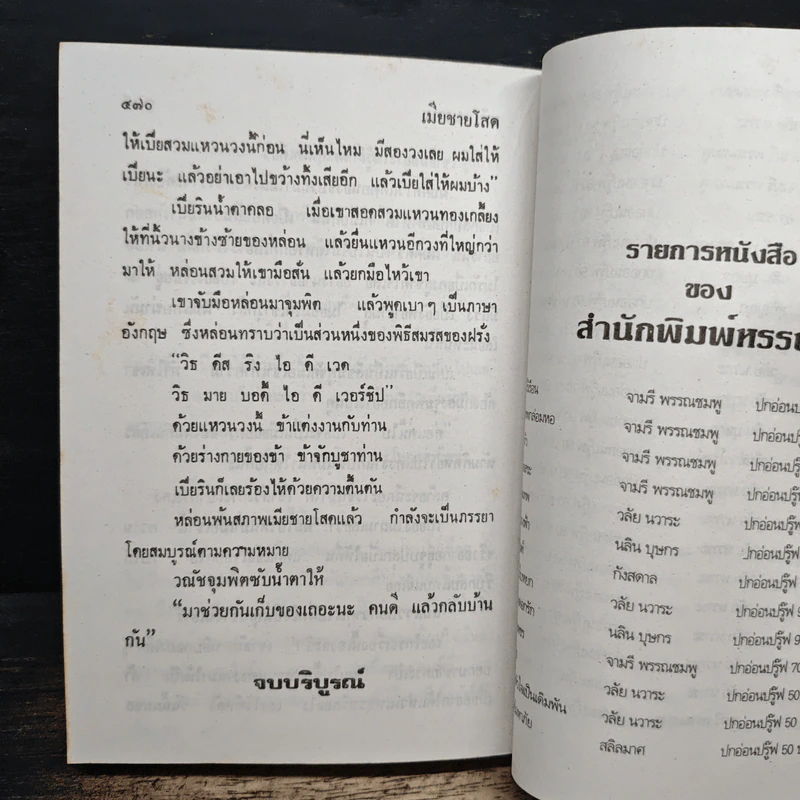 ๕๗๐
เมียชายโสด
ให้เบียสวมแหวนวงนี้ก่อน นี่เห็นไหม มีสองวงเลย ผมใส่ให้
เบียนะ แล้วอย่าเอาไปขว้างทิ้งเสียอีก แล้วเบียใส่ให้ผมบ้าง”
เบียรินน้ำตาคลอ เมื่อเขาสอดสวมแหวนทองเกลี้ยง
ให้ที่นิ้วนางข้างซ้ายของหล่อน แล้วยื่นแหวนอีกวงที่ใหญ่กว่า
มาให้ หล่อนสวมให้เขามือสั่น แล้วยกมือไหว้เขา
เขาจับมือหล่อนมาจุมพิต แล้วพูดเบาๆ เป็นภาษา
อังกฤษ ซึ่งหล่อนทราบว่าเป็นส่วนหนึ่งของพิธีสมรสของฝรั่ง
“วิธ ดีส ริง ไอ ดี เวด
วิธ มาย บอดี้ ไอ ดี เวอร์ชิป”
ด้วยแหวนวงนี้ ข้าแต่งงานกับท่าน
ด้วยร่างกายของข้า ข้าจักบูชาท่าน
เบียรินก็เลยร้องไห้ด้วยความตื้นตัน
หล่อนพ้นสภาพเมียชายโสดแล้ว กำลังจะเป็นภรรยา
โดยสมบูรณ์ตามความหมาย
วณัชจุมพิตซับน้ำตาให้
“มาช่วยกันเก็บของเถอะนะ คนดี แล้วกลับบ้าน
กัน”
จบบริบูรณ์
รายการหนังสือ
ของ
สำนักพิมพ์หรรษ
จามรี พรรณชมพู ปกอ่อนปรู๊ฟ
จามรี พรรณชมพู ปกอ่อนปรู๊ฟ
จามรี พรรณชมพู ปกอ่อนปรู๊ฟ
จามรี พรรณชมพู ปกอ่อนปรู๊ฟ
วลัย นวาระ ปกอ่อนปรู๊ฟ
นลิน บุษกร ปกอ่อนปรู๊ฟ
กังสดาล ปกอ่อนปรู๊ฟ
วลัย นวาระ ปกอ่อนปรู๊ฟ 9
นลิน บุษกร ปกอ่อนปรู๊ฟ 9
จามรี พรรณชมพู ปกอ่อนปรู๊ฟ 70
วลัย นวาระ ปกอ่อนปรู๊ฟ 50
วลัย นวาระ ปกอ่อนปรู๊ฟ 50
สลิลมาศ ปกอ่อนปรู๊ฟ 50